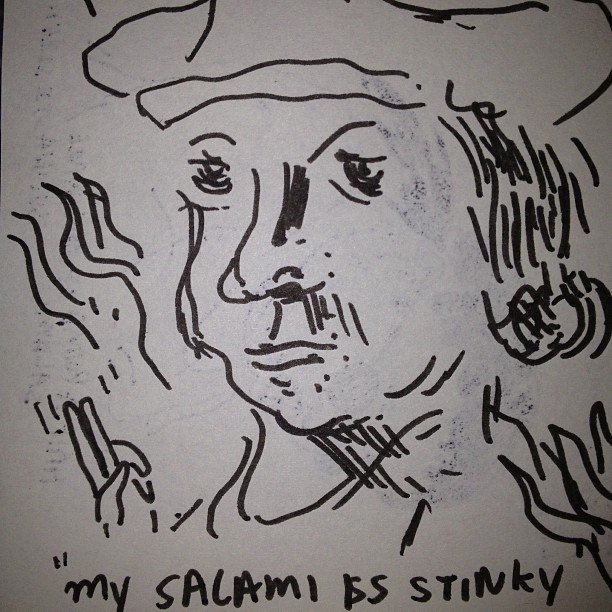 "my SALAMI ISS STINKY